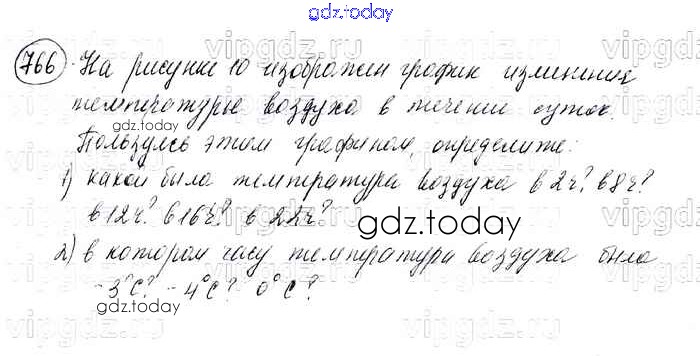 gdz.today
766. На рисунке 10 изображен график изменения
температуры воздуха в течении суток.
gdz.today
Пользуясь этим графиком, определите:
1) какой была температура воздуха в 2 ч? в 8 ч?
в 12 ч? в 16 ч? в 22 ч?
gdz.today
2) в котором часу температура воздуха была
-3°С? -4°С? 0°С?
gdz.today
vipgdz.ru